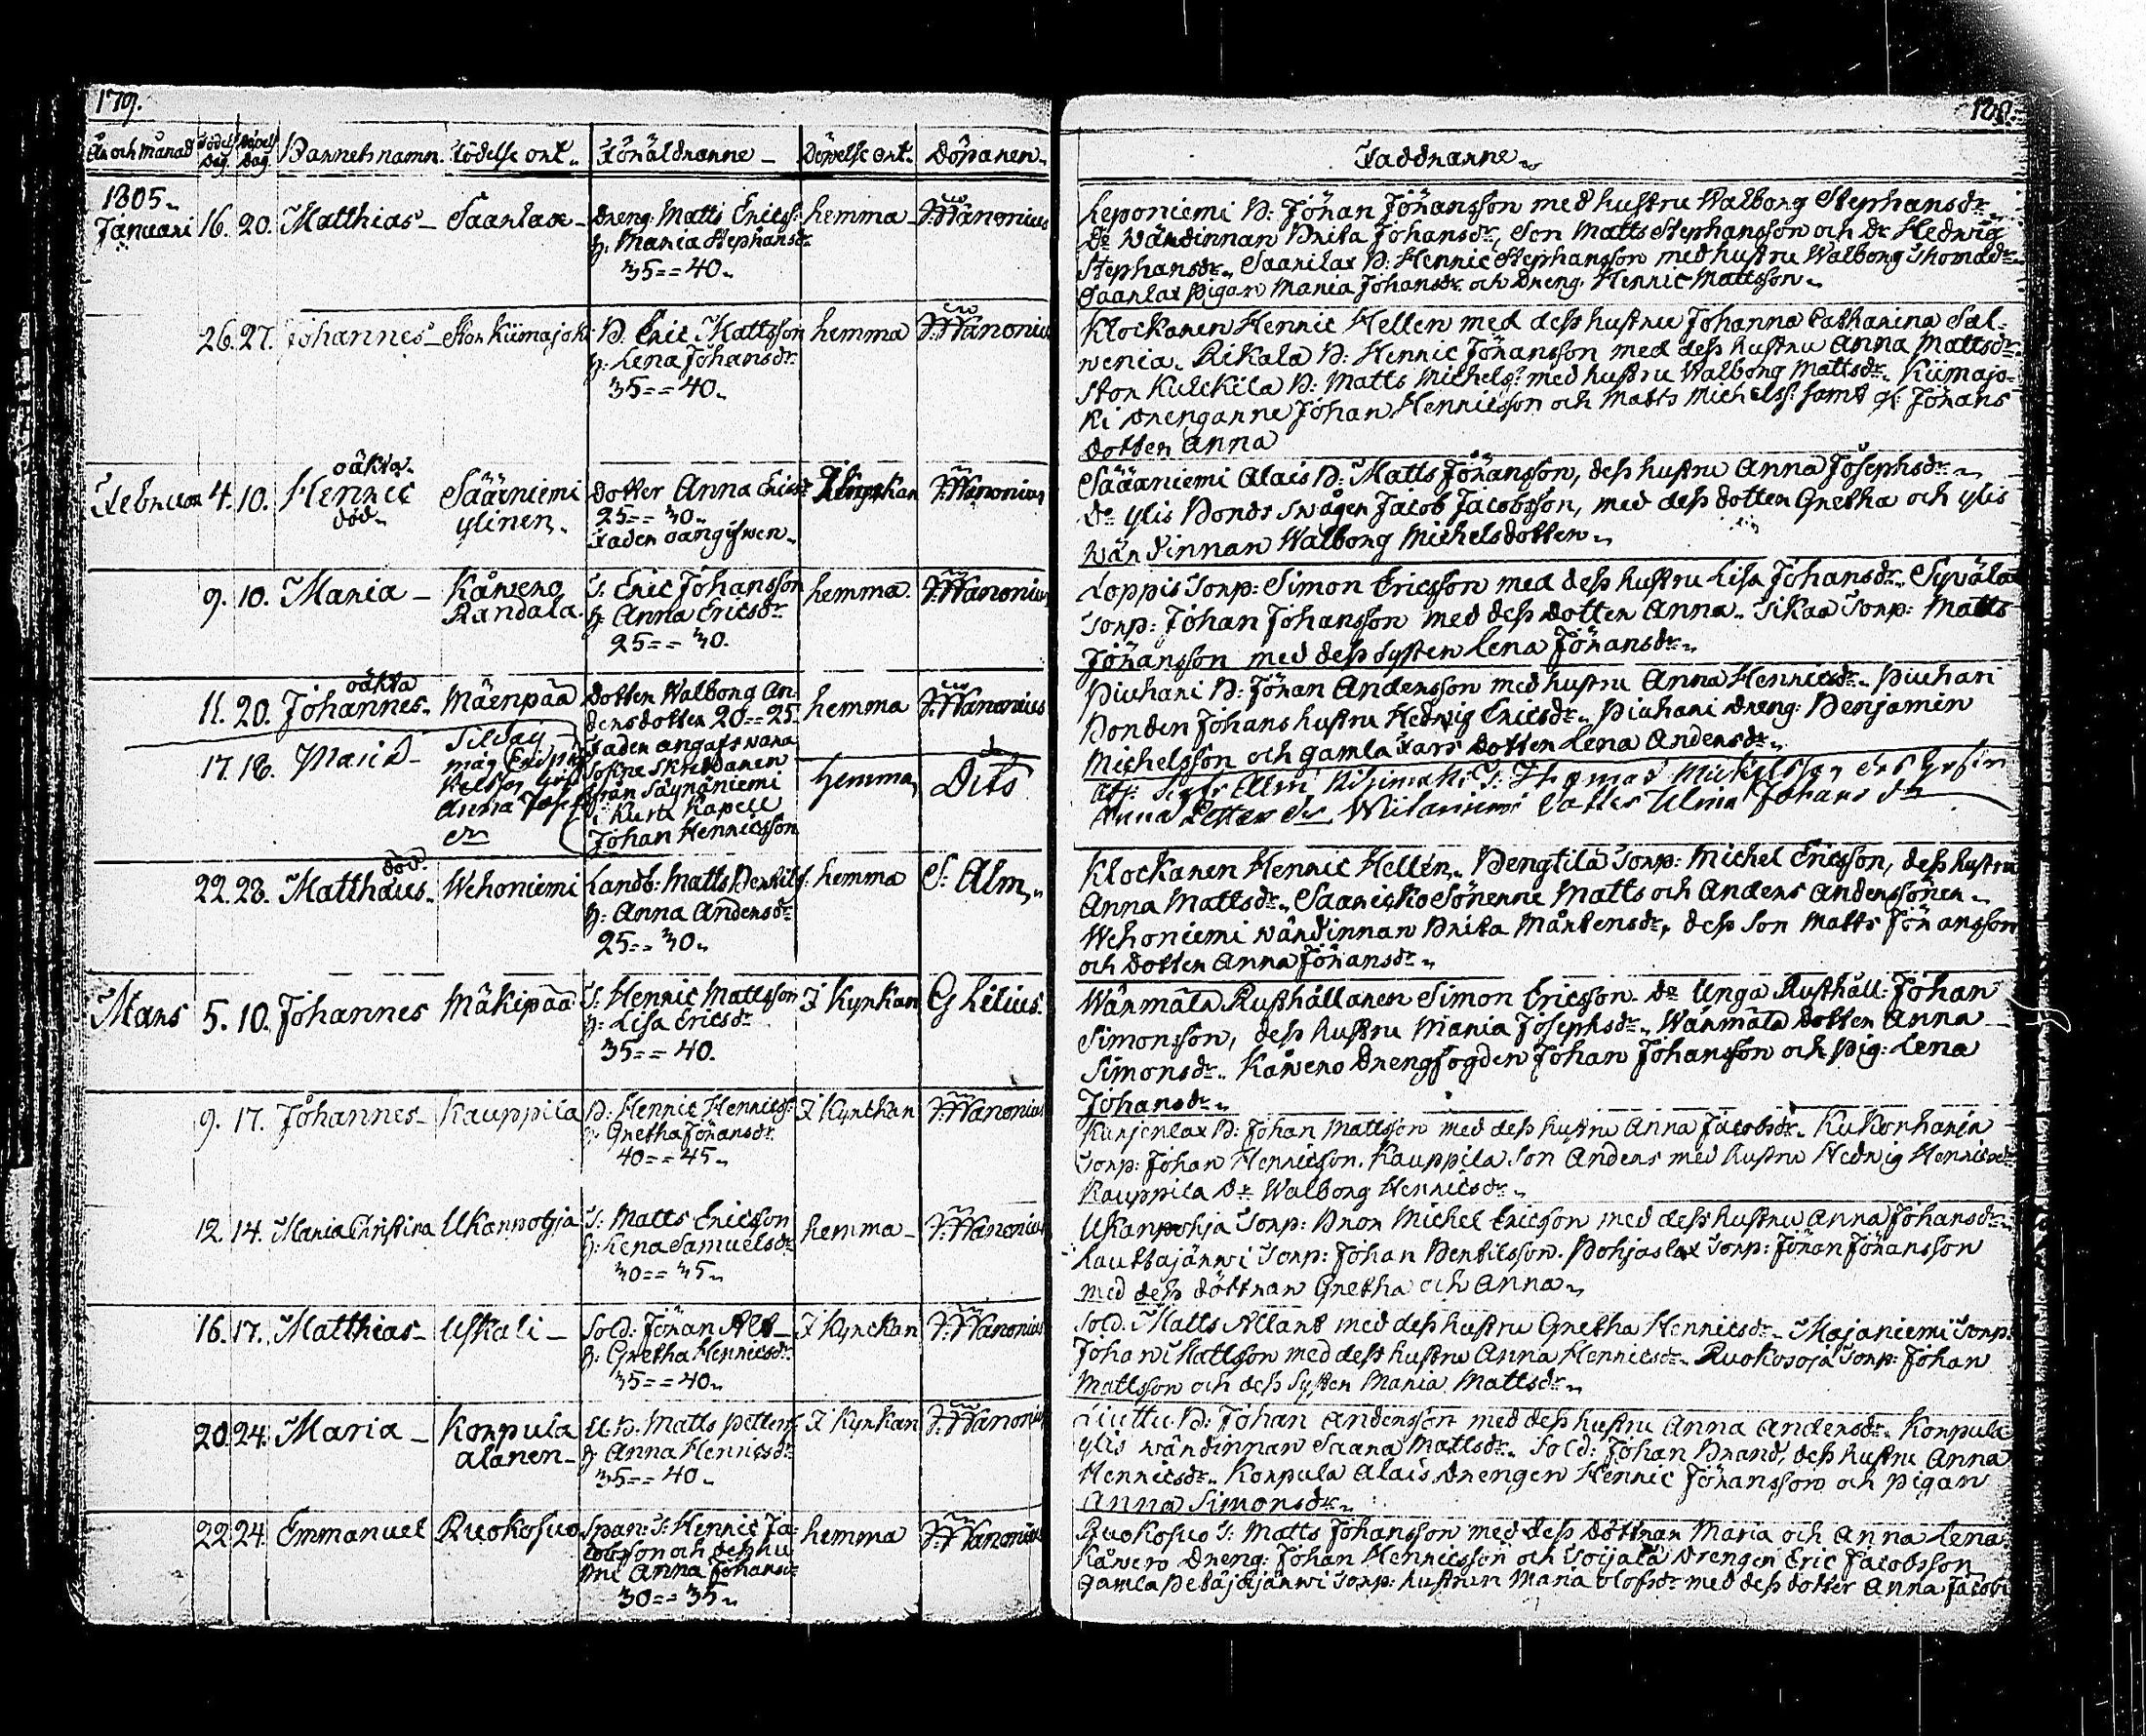 179.
År och Månad Födelse Dag Döpelse Dag Barnets namn. Födelse ort. Föräldrarne Döpelse ort. Döparen.
1805.
Januari 16. 20. Matthias Saarlax Dreng: Matti Ericss: hemma J: Wänonius
h: Maria Stephansdr
35 == 40.
26. 27. Johannes Stor Kiimajoki B: Eric Mattsson hemma J: Wänonius
h: Lena Johansdr
35 == 40.
oäkta
Februari 4. 10. Henric Sääxniemi Dotter Anna Ericsdr I Kyrkan J: Wänonius
död ylinen 25 == 30.
Faden oangifwen
9. 10. Maria Kåwero T: Eric Johansson hemma J: Wänonius
Randala h: Anna Ericsdr
25 == 30.
oäkta
11. 20. Johannes Mäenpää Dotter Walborg An- hemma J: Wänonius
dersdotter 20 == 25
Fader angafs wara
Sokne Skräddaren
från Säynäniemi
i Kuru Kapell
Johan Henricsson
17. 18. Maria hemma Dito
död
22. 23. Matthäus Wehoniemi Landb: Matts Henrics: hemma S: Alm
h: Anna Andersdr
25 == 30.
Mars 5. 10. Johannes Mäkipää T: Henric Mattsson I Kyrkan G Lilius.
h: Lisa Ericsdr
35 == 40.
9. 17. Johannes Kauppila B: Henric Henrics: I Kyrkan J: Wänonius
h: Gretha Johansdr
40 == 45.
12. 14. Maria Christina Ukonpohja T: Matts Ericsson hemma J: Wänonius
h: Lena Samuelsdr
30 == 35.
16. 17. Matthias Uskali Sold: Johan Alt I Kyrckan J: Wänonius
h: Gretha Henricsdr
35 == 40.
20. 24. Maria Korpula U. B. Matts Petters: I Kyrkan J: Wänonius
alanen h: Anna Henricsdr
35 == 40.
22. 24. Emmanuel Ruokosuo Span: T: Henric Ja- hemma J: Wänonius
cobsson och dess hu
stru Anna Johansdr
30 == 35.
180.
Faddrarne
Leponiemi B: Johan Johansson med hustru Walborg Stephansdr
Do wärdinnan Brita Johansdr, Son Matts Stephansson och Dr Hedwig
Stephansdr. Saarilax B: Henric Stephansson med hustru Walborg Thomædr
Saarlax pigan Maria Johansdr och Dreng: Henric Mattsson.
Klockaren Henric Hellen med dess hustru Johanna Catharina Sal-
wenia. Rikala B: Henric Johansson med dess hustru Anna Mattsdr
Stor Kulckila B: Matts Michels: med hustru Walborg Mattsdr. Kiimajo-
ki Drengarne Johan Henricsson och Matts Michelss: samt gl: Johans
dotter Anna
Sääxniemi Alais B: Matts Johansson, dess hustru Anna Josephsdr
Do ylis Bonds Swåger Jacob Jacobsson, med dess dotter Gretha och ylis
wärdinnan Walborg Michelsdotter.
Loppis Torp: Simon Ericsson med dess hustru Lisa Johansdr. Sywälax
Torp: Johan Johansson med dess dotter Anna. Sikaa Torp: Matts
Johansson med dess syster Lena Johansdr.
Piuhari B: Johan Andersson med hustru Anna Henricsdr. Piuhari
Bonden Johans hustru Hedwig Ericsdr. Piuhari Dreng: Benjamin
Michelsson och gamla Fars dotter Lena Andersdr.
Thomas Michelsson
Anna
Klockaren Henric Hellen. Pengtilä Torp: Michel Ericsson, dess hustru
Anna Mattsdr. Saarisko Sönerne Matts och Anders Anderssöner.
Wehoniemi wärdinnan Brita Mårtensdr, dess Son Matts Johansson
och dotter Anna Johansdr.
Wärmälä Rusthållaren Simon Ericsson. Do Unga Rusthåll: Johan
Simonsson, dess hustru Maria Josephsdr. Wärmälä dotter Anna
Simonsdr. Kåwero Drengfogden Johan Johansson och Pig: Lena
Johansdr.
Kurjenlax B: Johan Mattsson med dess hustru Anna Jacobsdr. Kukonharja
Torp: Johan Henricsson. Kauppila Son Anders med hustru Hedwig Henricsdr
Kauppila Dr Walborg Henricsdr.
Ukanpohja Torp: Bror Michel Ericsson med dess hustru Anna Johansdr
Lauttajärwi Torp: Johan Bertilsson. Pohjaslax Torp: Johan Johansson
med dess döttrar Gretha och Anna.
Sold. Matts Allant med dess hustru Gretha Henricsdr. Majaniemi Torp:
Johan Mattsson med dess hustru Anna Henricsdr. Ruokosoja Torp: Johan
Mattsson och dess syster Maria Mattsdr.
Liuttu B: Johan Andersson med dess hustru Anna Andersdr. Korpula
ylis wärdinnan Saara Mattsdr. Sold: Johan Brand, dess hustru Anna
Henricsdr. Korpula Alais drengen Henric Johansson och pigan
Anna Simonsdr.
Ruokosuo T: Matts Johansson med dess döttrar Maria och Anna Lena.
Kåwero Dreng: Johan Henricsson och Toijala drengen Eric Jacobsson
gamla Petäjäjärwi Torp: hustrun Maria Olofsdr med dess dotter Anna Jacobs